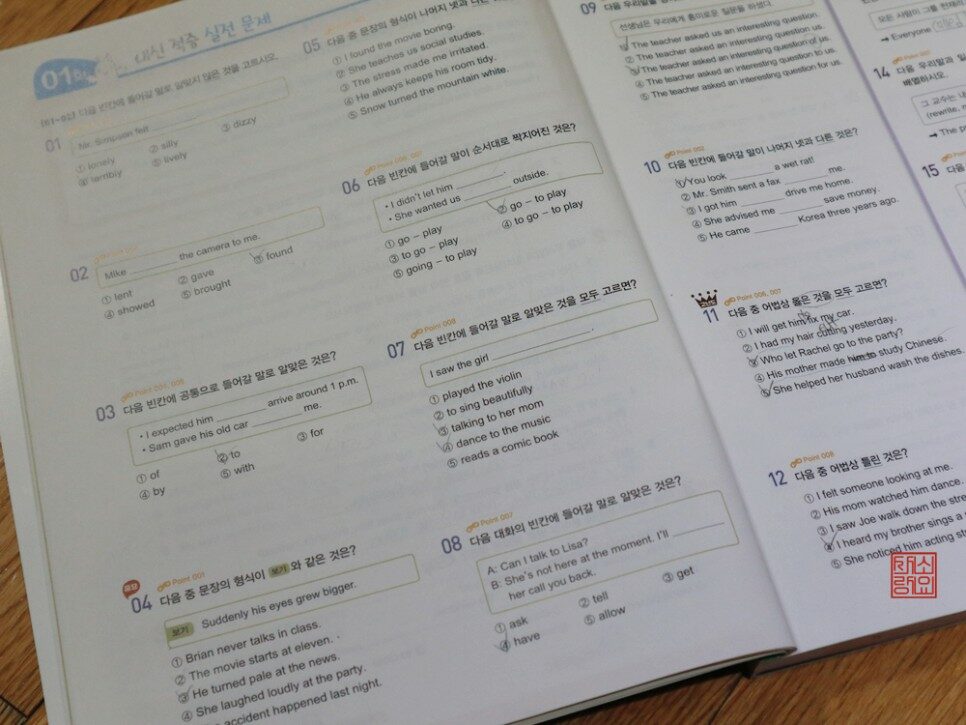 01
내신 적중 실전 문제
[01~02] 다음 빈칸에 들어갈 말로 알맞지 않은 것을 고르시오.
01
Mr. Simpson felt ________
① lonely ② silly ③ dizzy
④ terribly ⑤ lively
02
Mike ________ the camera to me.
① lent ② gave ③ found
④ showed ⑤ brought
Point 001, 005
03 다음 빈칸에 공통으로 들어갈 말로 알맞은 것은?
• I expected him ________ arrive around 1 p.m.
• Sam gave his old car ________ me.
① of ② to ③ for
④ by ⑤ with
Point 001
04 다음 중 문장의 형식이 보기 와 같은 것은?
보기 Suddenly his eyes grew bigger.
① Brian never talks in class.
② The movie starts at eleven.
③ He turned pale at the news.
④ She laughed loudly at the party.
accident happened last night.
05 다음 중 문장의 형식이 나머지 넷과 다른
① I found the movie boring.
② She teaches us social studies.
③ The stress made me irritated.
④ He always keeps his room tidy.
⑤ Snow turned the mountain white.
Point 006, 007
06 다음 빈칸에 들어갈 말이 순서대로 짝지어진 것은?
• I didn't let him ________.
• She wanted us ________ outside.
① go – play ② go – to play
③ to go – play ④ to go – to play
⑤ going – to play
Point 008
07 다음 빈칸에 들어갈 말로 알맞은 것을 모두 고르면?
I saw the girl ________.
① played the violin
② to sing beautifully
③ talking to her mom
④ dance to the music
⑤ reads a comic book
Point 007
08 다음 대화의 빈칸에 들어갈 말로 알맞은 것은?
A: Can I talk to Lisa?
B: She's not here at the moment. I'll ________
her call you back.
① ask ② tell ③ get
④ have ⑤ allow
09 다음 우리말을
선생님은 우리에게 흥미로운 질문을 하셨다.
① The teacher asked us an interesting question.
② The teacher asked an interesting question us.
③ The teacher asked an interesting question of us.
④ The teacher asked an interesting question to us.
⑤ The teacher asked an interesting question for us.
Point 002
10 다음 빈칸에 들어갈 말이 나머지 넷과 다른 것은?
① You look ________ a wet rat!
② Mr. Smith sent a fax ________ me.
③ I got him ________ drive me home.
④ She advised me ________ save money.
⑤ He came ________ Korea three years ago.
Point 006, 007
11 다음 중 어법상 옳은 것을 모두 고르면?
① I will get him fix my car.
to
② I had my hair cutting yesterday.
③ Who let Rachel go to the party?
④ His mother made him to study Chinese.
⑤ She helped her husband wash the dishes.
Point 008
12 다음 중 어법상 틀린 것은?
① I felt someone looking at me.
② His mom watched him dance.
③ I saw Joe walk down the stre
④ I heard my brother sings a
⑤ She noticed him acting st
모든 사람이 그를 천재라
➡ Everyone
14 다음 우리말과 일
배열하시오.
그 교수는 내
(rewrite, m
➡ The p
15 다음